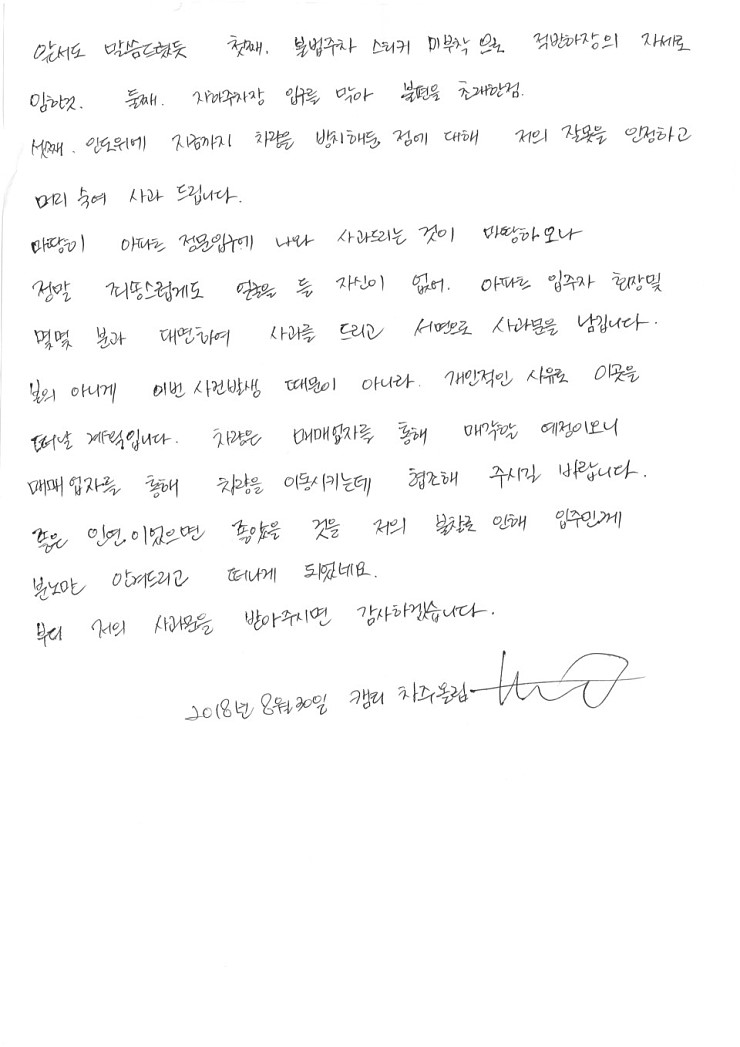 앞서도 말씀드렸듯 첫째. 불법주차 스티커 미부착 으로 적반하장의 자세로
임한것. 둘째. 지하주차장 입구를 막아 불편을 초래한점.
셋째. 인도위에 지금까지 차량을 방치해둔 점에 대해 저의 잘못을 인정하고
머리 숙여 사과 드립니다.
마땅히 아파트 정문입구에 나와 사과드리는 것이 마땅하오나
정말 죄송스럽게도 얼굴을 들 자신이 없어. 아파트 입주자 회장및
몇몇 분과 대면하여 사과를 드리고 서면으로 사과문을 남깁니다.
본의 아니게 이번 사건발생 때문이 아니라. 개인적인 사유로 이곳을
떠날 계획입니다. 차량은 매매업자를 통해 매각할 예정이오니
매매 업자를 통해 차량을 이동시키는데 협조해 주시길 바랍니다.
좋은 인연이었으면 좋았을 것을 저의 불찰로 인해 입주민께
분노만 안겨드리고 떠나게 되었네요.
부디 저의 사과문을 받아주시면 감사하겠습니다.
2018년 8월 30일 캠리 차주올림